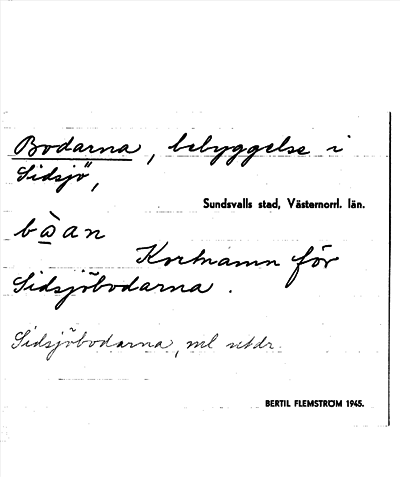 Bodarna, bebyggelse i
Sidsjö,
Sundsvalls stad, Västernorrl. län.
bò̱an
Kortnamn för
Sidsjöbodarna.
Sidsjöbodarna, ml
BERTIL FLEMSTRÖM 1945.